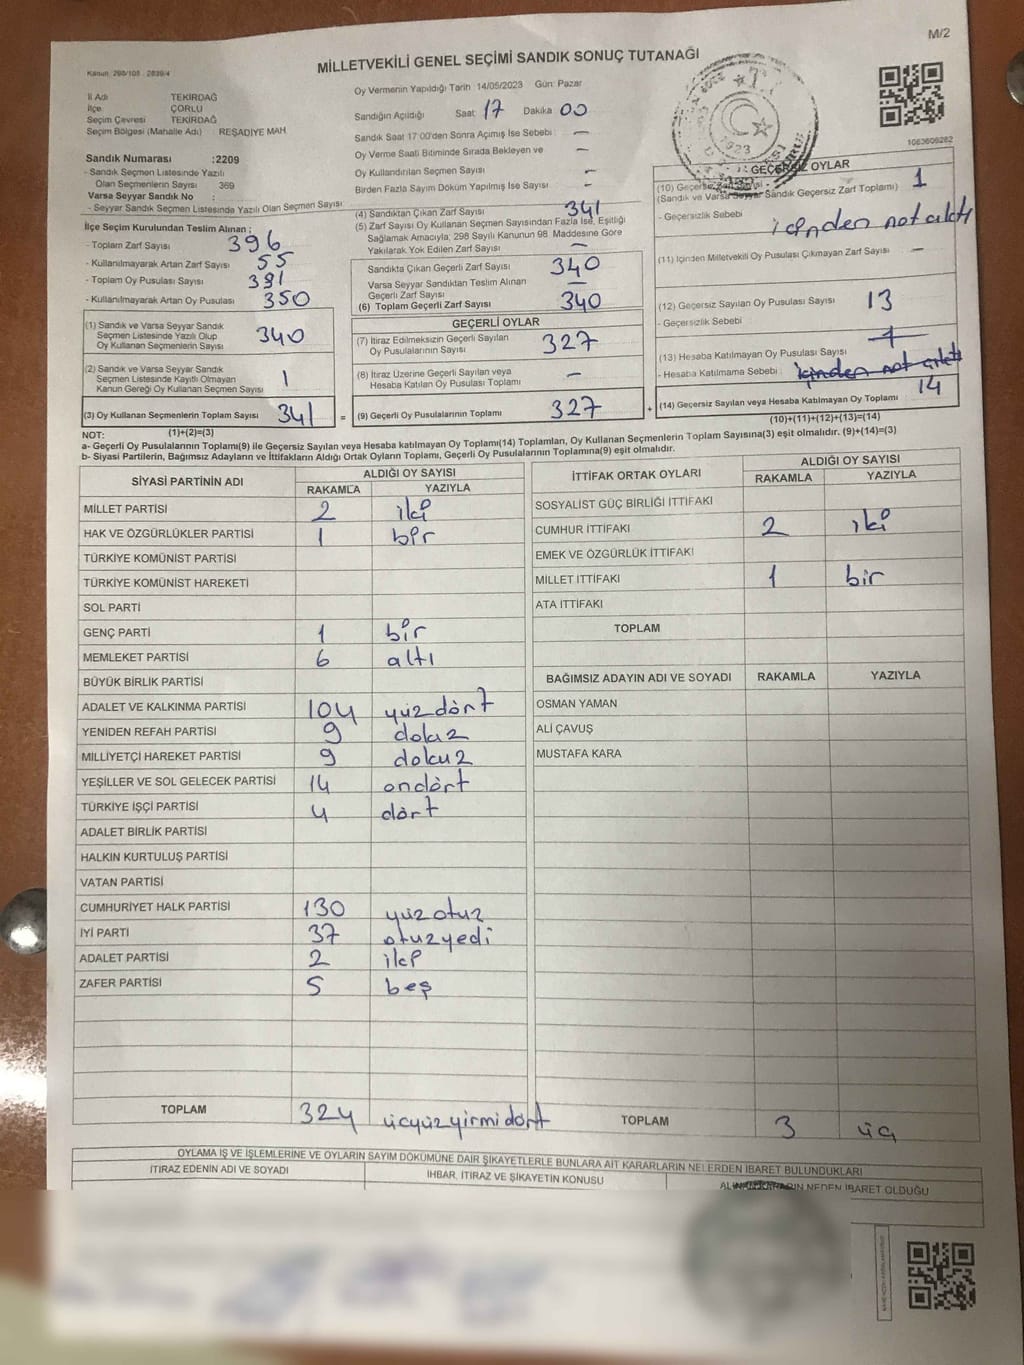 M/2
Kanun: 298/105 - 2839/4
MİLLETVEKİLİ GENEL SEÇİMİ SANDIK SONUÇ TUTANAĞI
İl Adı TEKİRDAĞ
İlçe ÇORLU
Seçim Çevresi TEKİRDAĞ
Seçim Bölgesi (Mahalle Adı) REŞADİYE MAH
Sandık Numarası :2209
- Sandık Seçmen Listesinde Yazılı
Olan Seçmenlerin Sayısı 369
Varsa Seyyar Sandık No :
- Seyyar Sandık Seçmen Listesinde Yazılı Olan Seçmen Sayısı
Oy Vermenin Yapıldığı Tarih 14/05/2023 Gün: Pazar
Sandığın Açıldığı Saat 17 Dakika 00
Sandık Saat 17:00'den Sonra Açımış İse Sebebi : —
Oy Verme Saati Bitiminde Sırada Bekleyen ve —
Oy Kullandırılan Seçmen Sayısı —
Birden Fazla Sayım Döküm Yapılmış İse Sayısı —
1923
1083609262
İlçe Seçim Kurulundan Teslim Alınan ;
- Toplam Zarf Sayısı 396
- Kullanılmayarak Artan Zarf Sayısı 55
- Toplam Oy Pusulası Sayısı 391
- Kullanılmayarak Artan Oy Pusulası 350
(1) Sandık ve Varsa Seyyar Sandık
Seçmen Listesinde Yazılı Olup
Oy Kullanan Seçmenlerin Sayısı 340
(2) Sandık ve Varsa Seyyar Sandık
Seçmen Listesinde Kayıtlı Olmayan
Kanun Gereği Oy Kullanan Seçmen Sayısı 1
(3) Oy Kullanan Seçmenlerin Toplam Sayısı 341 =
(1)+(2)=(3)
(4) Sandıktan Çıkan Zarf Sayısı 341
(5) Zarf Sayısı Oy Kullanan Seçmen Sayısından Fazla İse, Eşitliği
Sağlamak Amacıyla, 298 Sayılı Kanunun 98 Maddesine Göre
Yakılarak Yok Edilen Zarf Sayısı —
Sandıkta Çıkan Geçerli Zarf Sayısı 340
Varsa Seyyar Sandıktan Teslim Alınan
Geçerli Zarf Sayısı —
(6) Toplam Geçerli Zarf Sayısı 340
GEÇERLİ OYLAR
(7) İtiraz Edilmeksizin Geçerli Sayılan
Oy Pusulalarının Sayısı 327
(8) İtiraz Üzerine Geçerli Sayılan veya
Hesaba Katılan Oy Pusulası Toplamı —
(9) Geçerli Oy Pusulalarının Toplamı 327 +
GEÇERSİZ OYLAR
(10) Geçersiz Zarf Sayısı - 1
(Sandık ve Varsa Seyyar Sandık Geçersiz Zarf Toplamı)
- Geçersizlik Sebebi içinden not çıktı
(11) İçinden Milletvekili Oy Pusulası Çıkmayan Zarf Sayısı —
(12) Geçersiz Sayılan Oy Pusulası Sayısı 13
- Geçersizlik Sebebi
(13) Hesaba Katılmayan Oy Pusulası Sayısı
- Hesaba Katılmama Sebebi : içinden not çıktı
(14) Geçersiz Sayılan veya Hesaba Katılmayan Oy Toplamı 14
(10)+(11)+(12)+(13)=(14)
NOT:
a- Geçerli Oy Pusulalarının Toplamı(9) ile Geçersiz Sayılan veya Hesaba katılmayan Oy Toplamı(14) Toplamları, Oy Kullanan Seçmenlerin Toplam Sayısına(3) eşit olmalıdır. (9)+(14)=(3)
b- Siyasi Partilerin, Bağımsız Adayların ve İttifakların Aldığı Ortak Oyların Toplamı, Geçerli Oy Pusulalarının Toplamına(9) eşit olmalıdır.
SİYASİ PARTİNİN ADI ALDIĞI OY SAYISI
RAKAMLA YAZIYLA
MİLLET PARTİSİ 2 iki
HAK VE ÖZGÜRLÜKLER PARTİSİ 1 bir
TÜRKİYE KOMÜNİST PARTİSİ
TÜRKİYE KOMÜNİST HAREKETİ
SOL PARTİ
GENÇ PARTİ 1 bir
MEMLEKET PARTİSİ 6 altı
BÜYÜK BİRLİK PARTİSİ
ADALET VE KALKINMA PARTİSİ 104 yüzdört
YENİDEN REFAH PARTİSİ 9 dokuz
MİLLİYETÇİ HAREKET PARTİSİ 9 dokuz
YEŞİLLER VE SOL GELECEK PARTİSİ 14 ondört
TÜRKİYE İŞÇİ PARTİSİ 4 dört
ADALET BİRLİK PARTİSİ
HALKIN KURTULUŞ PARTİSİ
VATAN PARTİSİ
CUMHURİYET HALK PARTİSİ 130 yüzotuz
İYİ PARTİ 37 otuzyedi
ADALET PARTİSİ 2 iki
ZAFER PARTİSİ 5 beş
TOPLAM 324 üçyüzyirmidört
İTTİFAK ORTAK OYLARI ALDIĞI OY SAYISI
RAKAMLA YAZIYLA
SOSYALİST GÜÇ BİRLİĞİ İTTİFAKI
CUMHUR İTTİFAKI 2 iki
EMEK VE ÖZGÜRLÜK İTTİFAKI
MİLLET İTTİFAKI 1 bir
ATA İTTİFAKI
TOPLAM
BAĞIMSIZ ADAYIN ADI VE SOYADI RAKAMLA YAZIYLA
OSMAN YAMAN
ALİ ÇAVUŞ
MUSTAFA KARA
TOPLAM 3 üç
OYLAMA İŞ VE İŞLEMLERİNE VE OYLARIN SAYIM DÖKÜMÜNE DAİR ŞİKAYETLERLE BUNLARA AİT KARARLARIN NELERDEN İBARET BULUNDUKLARI
İTİRAZ EDENİN ADI VE SOYADI İHBAR, İTİRAZ VE ŞİKAYETİN KONUSU ALINAN KARARIN NEDEN İBARET OLDUĞU